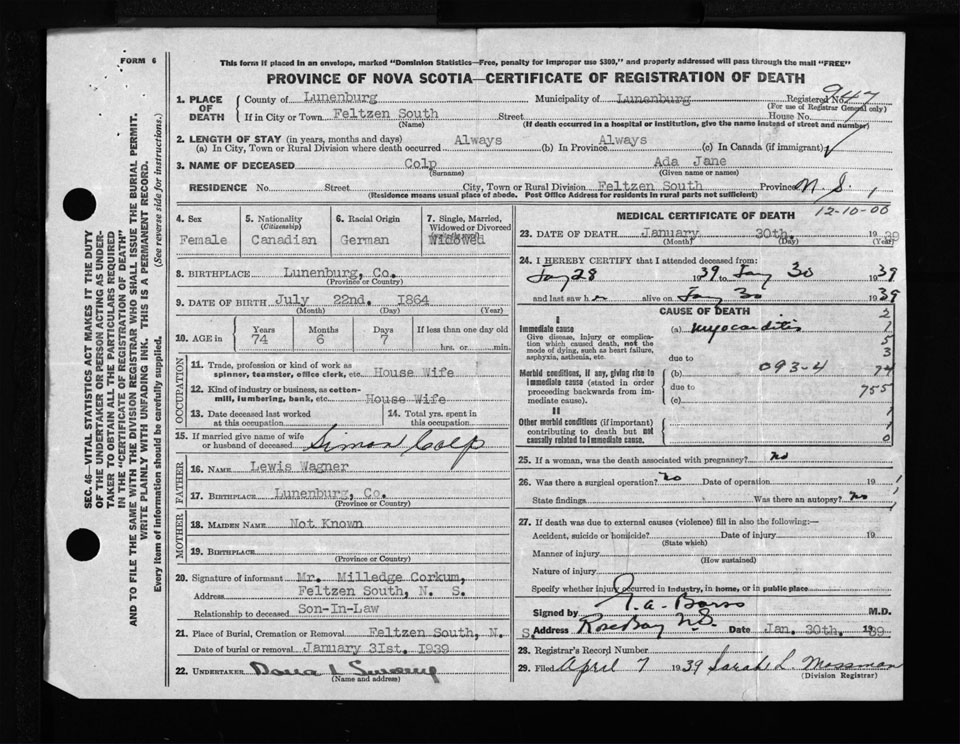 FORM 6
This form if placed in an envelope, marked "Dominion Statistics—Free, penalty for improper use $300," and properly addressed will pass through the mail "FREE"
PROVINCE OF NOVA SCOTIA—CERTIFICATE OF REGISTRATION OF DEATH
SEC. 46—VITAL STATISTICS ACT MAKES IT THE DUTY
OF THE UNDERTAKER OR PERSON ACTING AS UNDER-
TAKER TO OBTAIN ALL THE PARTICULARS REQUIRED
IN THE "CERTIFICATE OF REGISTRATION OF DEATH"
AND TO FILE THE SAME WITH THE DIVISION REGISTRAR WHO SHALL ISSUE THE BURIAL PERMIT.
WRITE PLAINLY WITH UNFADING INK. THIS IS A PERMANENT RECORD.
Every item of information should be carefully supplied. (See reverse side for instructions.)
1. PLACE OF DEATH County of Lunenburg Municipality of Lunenburg Registered No. 947
(For use of Registrar General only)
If in City or Town Feltzen South Street House No.
(Name) (If death occurred in a hospital or institution, give the name instead of street and number)
2. LENGTH OF STAY (in years, months and days)
(a) In City, Town or Rural Division where death occurred Always (b) In Province Always (c) In Canada (if immigrant)
3. NAME OF DECEASED Colp Ada Jane
(Surname) (Given name or names)
RESIDENCE No. Street City, Town or Rural Division Feltzen South Province N. S.
(Residence means usual place of abode. Post Office Address for residents in rural parts not sufficient)
4. Sex 5. Nationality (Citizenship) 6. Racial Origin 7. Single, Married, Widowed or Divorced
Female Canadian German Widowed
8. BIRTHPLACE Lunenburg, Co.
(Province or Country)
9. DATE OF BIRTH July 22nd. 1864
(Month) (Day) (Year)
10. AGE in Years Months Days If less than one day old
74 6 7 hrs. or min.
OCCUPATION
11. Trade, profession or kind of work as
spinner, teamster, office clerk, etc. House Wife
12. Kind of industry or business, as cotton-
mill, lumbering, bank, etc. House Wife
13. Date deceased last worked
at this occupation
14. Total yrs. spent in
this occupation
15. If married give name of wife
or husband of deceased Simon Colp
FATHER
16. NAME Lewis Wagner
17. BIRTHPLACE Lunenburg, Co.
(Province or Country)
MOTHER
18. MAIDEN NAME Not Known
19. BIRTHPLACE
(Province or Country)
20. Signature of informant Mr. Milledge Corkum,
Address Feltzen South, N. S.
Relationship to deceased Son-In-Law
21. Place of Burial, Cremation or Removal Feltzen South, N. S.
Date of burial or removal January 31st. 1939
22. UNDERTAKER
(Name and address)
MEDICAL CERTIFICATE OF DEATH
12-10-00
23. DATE OF DEATH January 30th. 1939
(Month) (Day) (Year)
24. I HEREBY CERTIFY that I attended deceased from:
Jay 28 1939 to Jay 30 1939
and last saw her alive on Jay 30 1939
CAUSE OF DEATH
I
Immediate cause (a) Myocarditis
Give disease, injury or complica-
tion which caused death, not the
mode of dying, such as heart failure,
asphyxia, asthenia, etc.
due to
Morbid conditions, if any, giving rise to
immediate cause (stated in order
proceeding backwards from im-
mediate cause).
(b) 093-4
due to
(c)
II
Other morbid conditions (if important)
contributing to death but not
causally related to immediate cause.
2
1
5
3
74
755
1
1
0
25. If a woman, was the death associated with pregnancy? no
26. Was there a surgical operation? no Date of operation 19
State findings Was there an autopsy? no
27. If death was due to external causes (violence) fill in also the following:—
Accident, suicide or homicide? Date of injury 19
(State which)
Manner of injury
(How sustained)
Nature of injury
Specify whether injury occurred in industry, in home, or in public place
Signed by M.D.
Address Rose Bay N.S. Date Jan. 30th. 1939
28. Registrar's Record Number
29. Filed April 7 1939 Sarah L. Mossman
(Division Registrar)